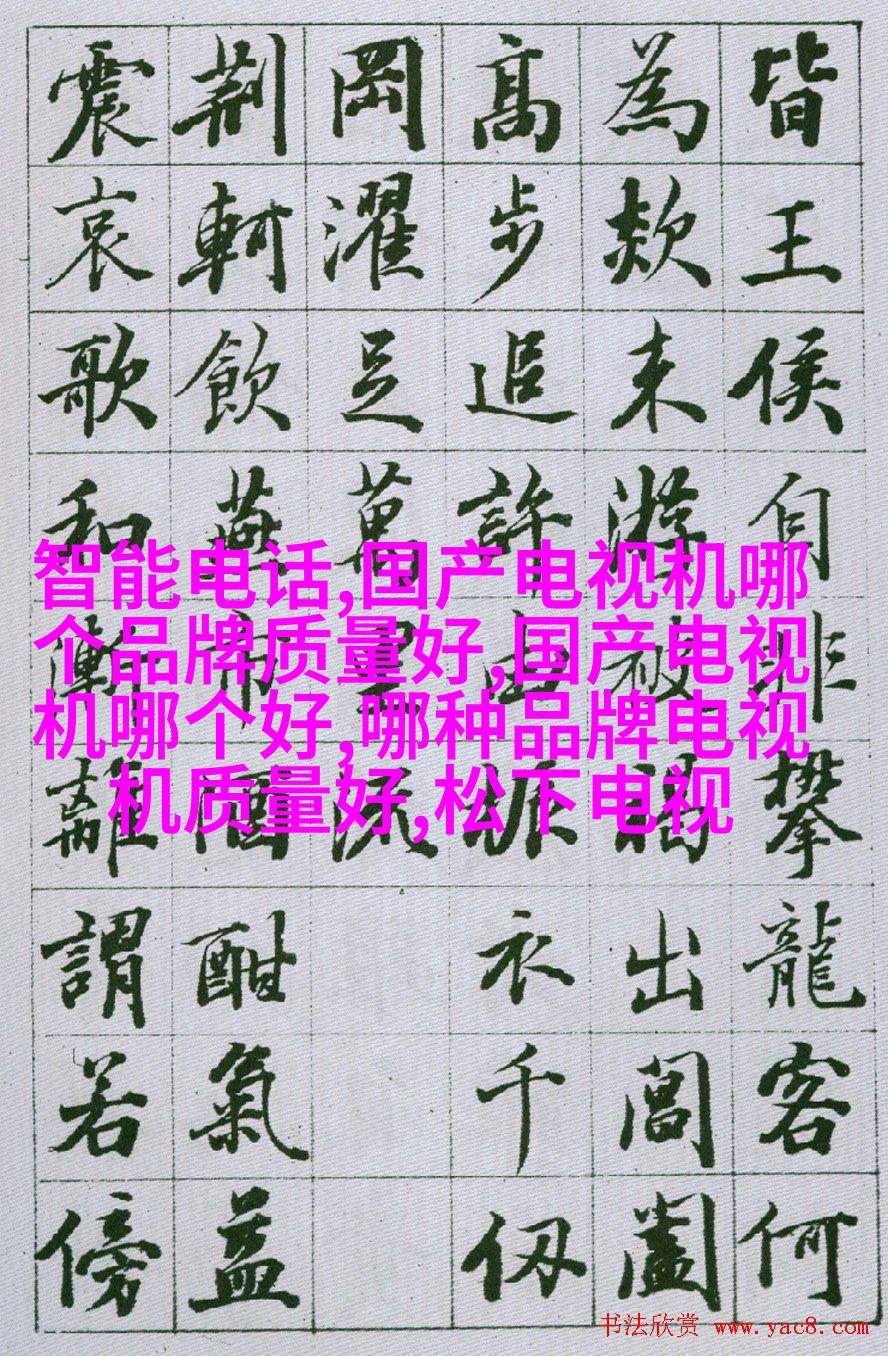 皆王侯自非攀龍客何
為欻来游被褐出閶闔
高步追許由振衣千仞
岡濯足萬里流
荆軻飲燕市酒酣氣益
震哀歌和漸離謂若傍
智能电话,国产电视机哪
个品牌质量好,国产电视
机哪个好,哪种品牌电视
机质量好,松下电视
书法欣赏 www.yac8.com